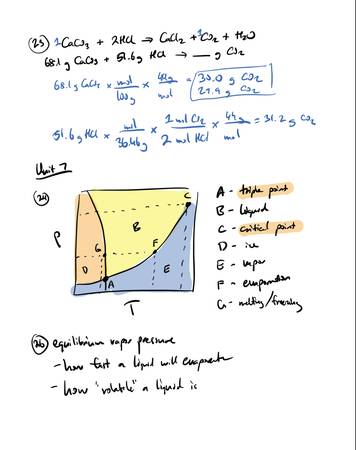 25) 1CaCO3 + 2HCl → CaCl2 + 1CO2 + H2O
68.1 g CaCO3 + 51.6 g HCl → __ g CO2
68.1 g CaCO3 × mol/100g × 44g/mol = 30.0 g CO2
29.9 g CO2
51.6 g HCl × mol/36.46g × 1 mol CO2/2 mol HCl × 44g/mol = 31.2 g CO2
Unit 7
P
T
A
B
C
D
E
F
G
A - triple point
B - liquid
C - critical point
D - ice
E - vapor
F - evaporation
G - melting/freezing
26) equilibrium vapor pressure
- how fast a liquid will evaporate
- how "volatile" a liquid is